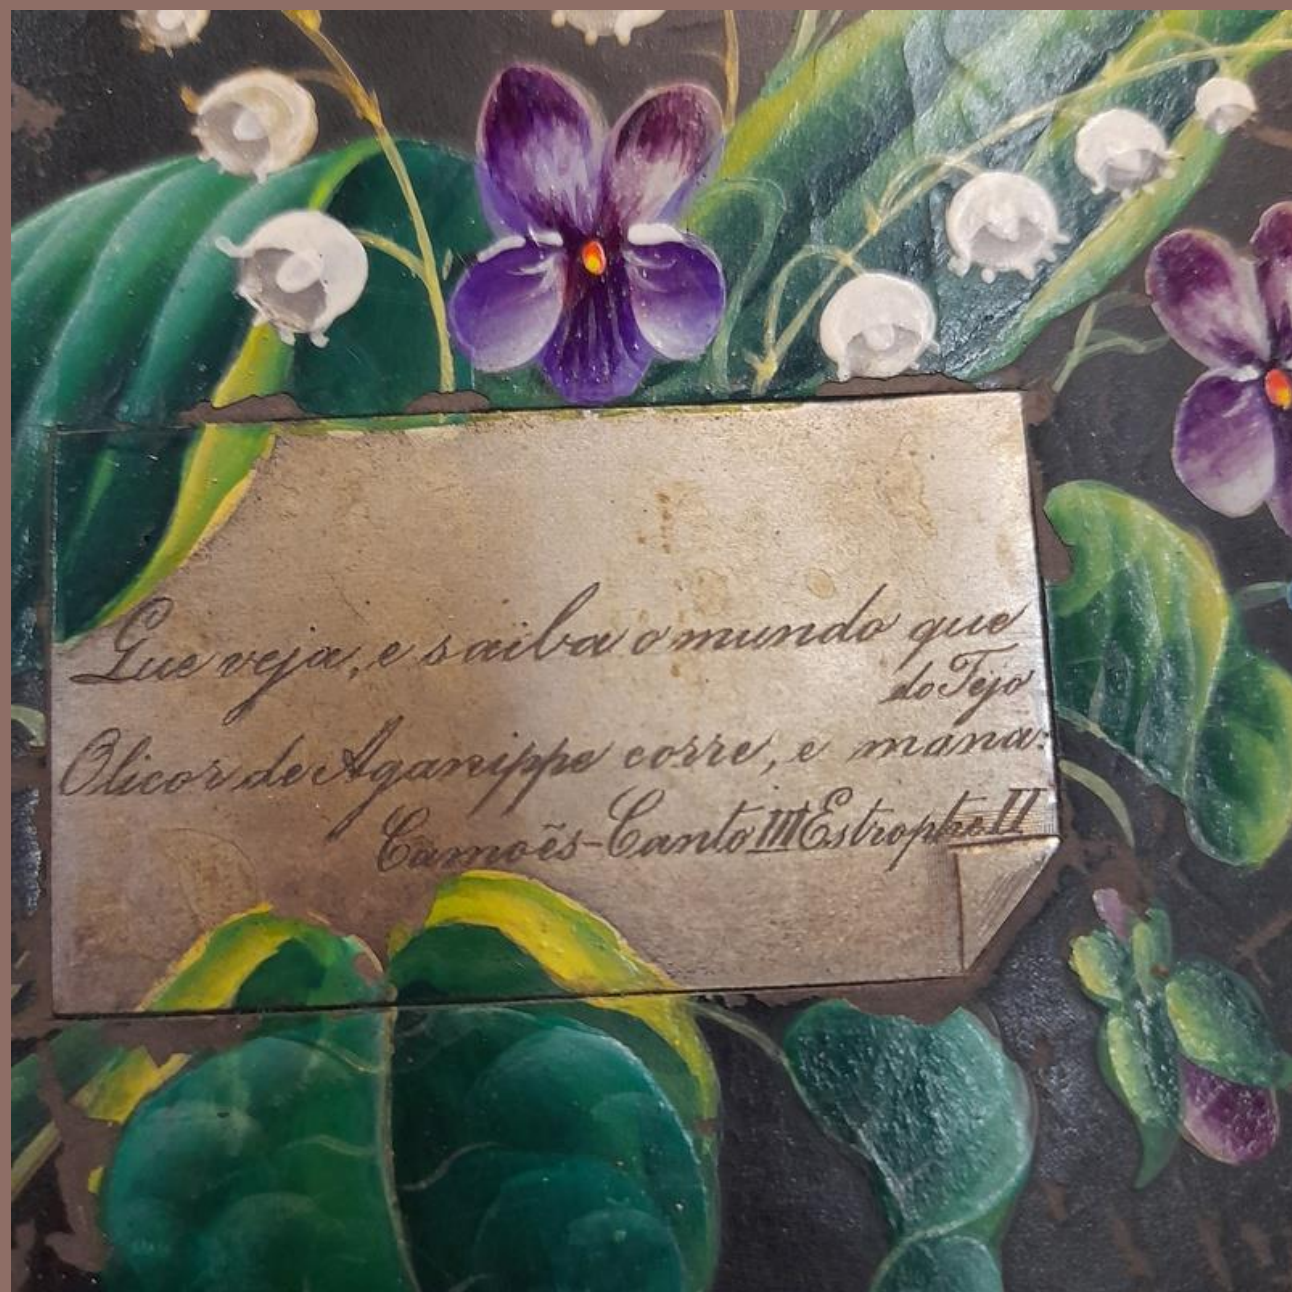 Que veja, e saiba o mundo que
do Tejo
O licor de Aganippe corre, e mana.
Camoẽs-Canto III Estrophe II